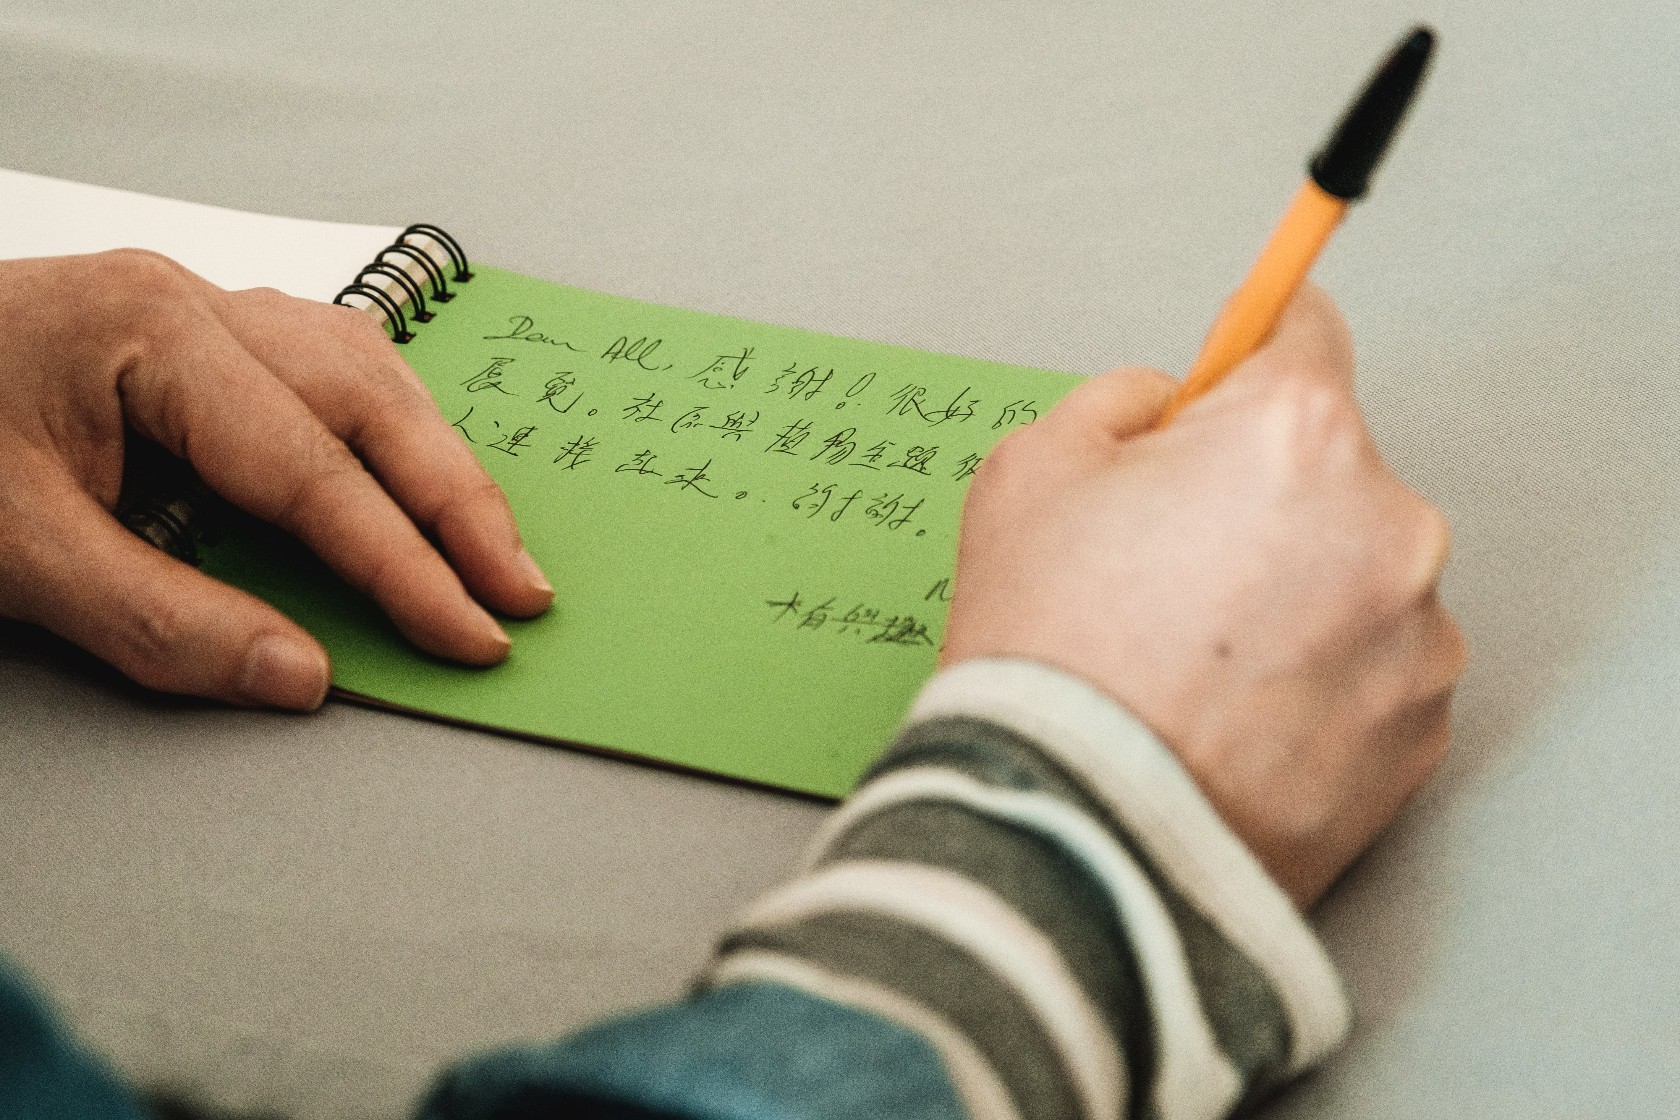 Dear All, 感謝！很好的
展覽。社區與植物主題很
人連接起來。謝謝。
有興趣